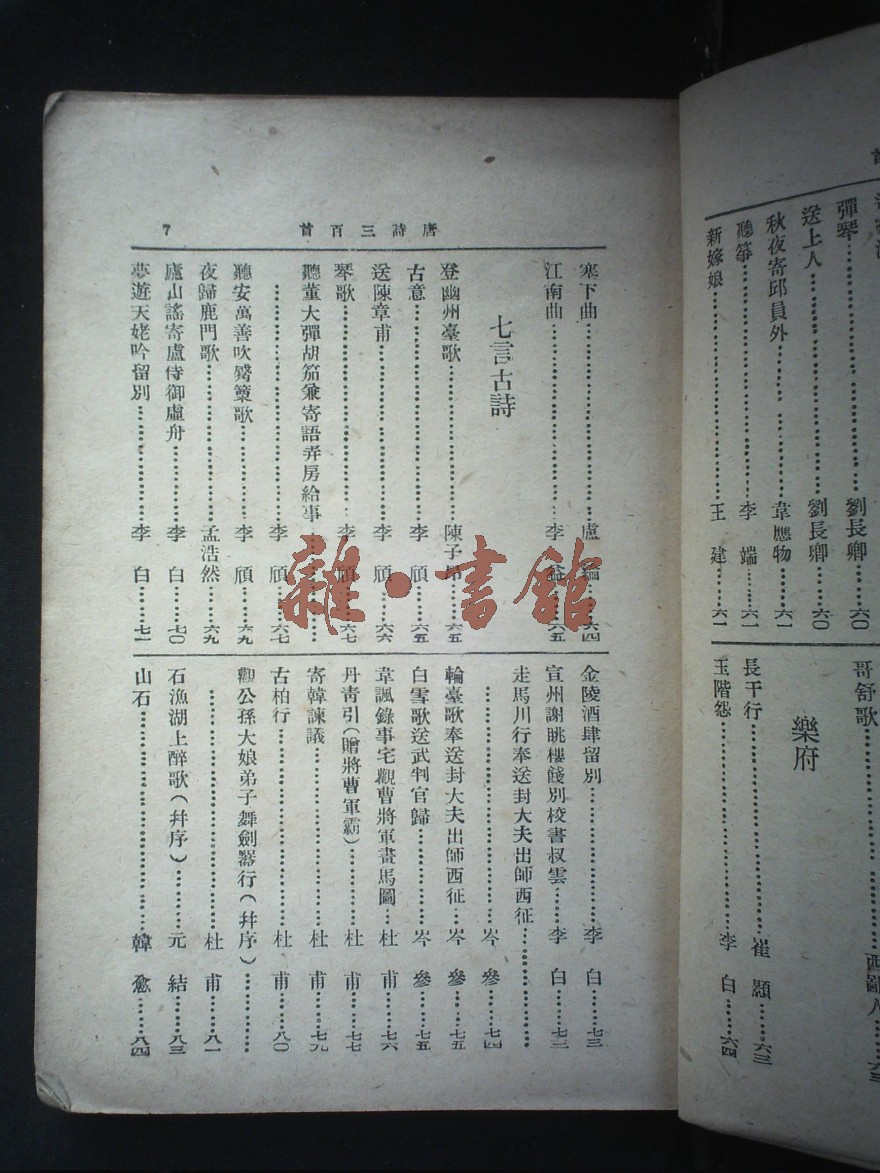 彈琴……劉長卿……六〇
送上人……劉長卿……六〇
秋夜寄邱員外……韋應物……六一
聽箏……李端……六一
新嫁娘……王建……六一
哥舒歌……西鄙人……六三
樂府
長干行……崔顥……六三
玉階怨……李白……六四
唐詩三百首
7
塞下曲……盧綸……六四
江南曲……李益……六五
七言古詩
登幽州臺歌……陳子昂……六五
古意……李頎……六五
送陳章甫……李頎……六六
琴歌……李頎……六七
聽董大彈胡笳兼寄語弄房給事……
……李頎……六七
聽安萬善吹觱篥歌……李頎……六九
夜歸鹿門歌……孟浩然……六九
廬山謠寄盧侍御虛舟……李白……七〇
夢遊天姥吟留別……李白……七一
金陵酒肆留別……李白……七三
宣州謝眺樓餞別校書叔雲……李白……七三
走馬川行奉送封大夫出師西征……
……岑參……七四
輪臺歌奉送封大夫出師西征……岑參……七五
白雪歌送武判官歸……岑參……七五
韋諷錄事宅觀曹將軍畫馬圖……杜甫……七六
丹靑引(贈將曹軍霸)……杜甫……七七
寄韓諫議……杜甫……七九
古柏行……杜甫……八〇
觀公孫大娘弟子舞劍器行(幷序)……
……杜甫……八一
石漁湖上醉歌(幷序)……元結……八三
山石……韓愈……八四
雜·書館